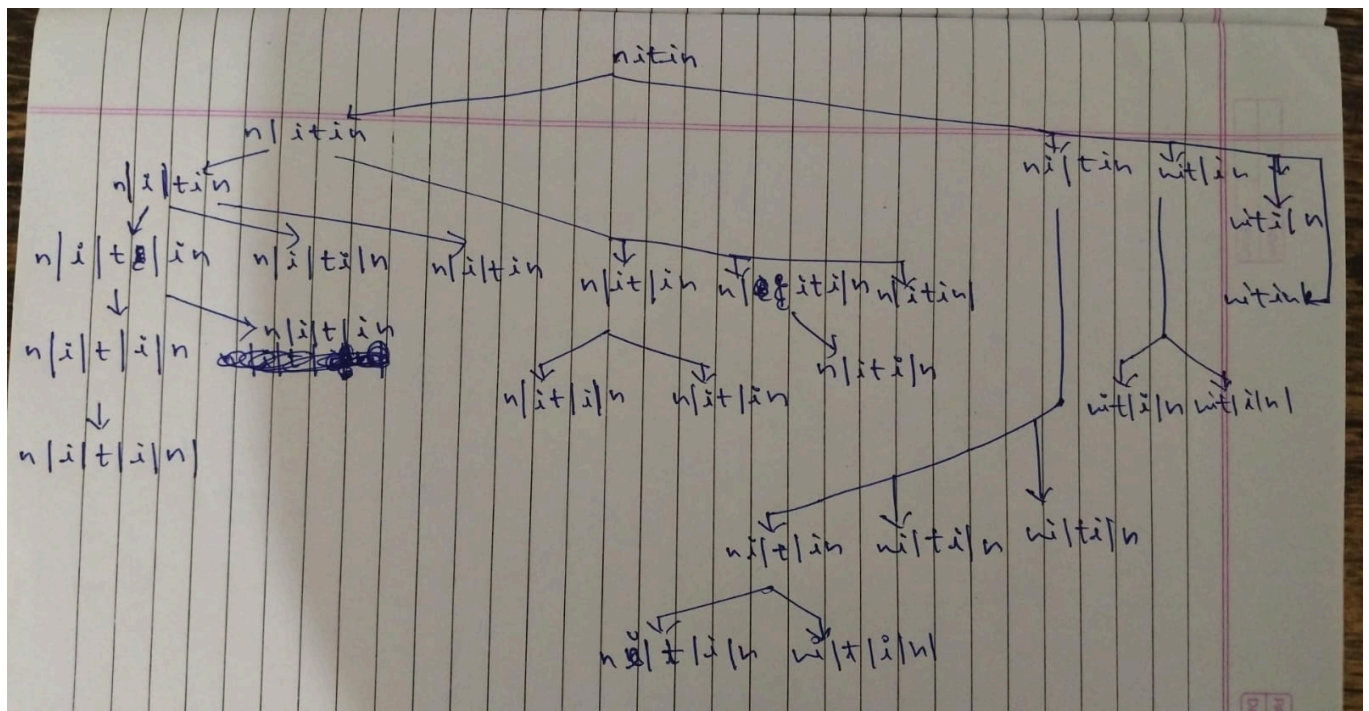 nitin
n|itin
n|i|tin
ni|tin nit|in
niti|n
n|i|t|in n|i|ti|n n|i|tin
n|it|in n|iti|n n|itin|
nitin|
n|i|t|i|n n|i|t|in
n|iti|n
n|it|i|n n|it|in
nit|i|n nit|i|n|
n|i|t|i|n|
ni|t|in ni|ti|n ni|ti|n
ni|t|i|n ni|t|i|n|